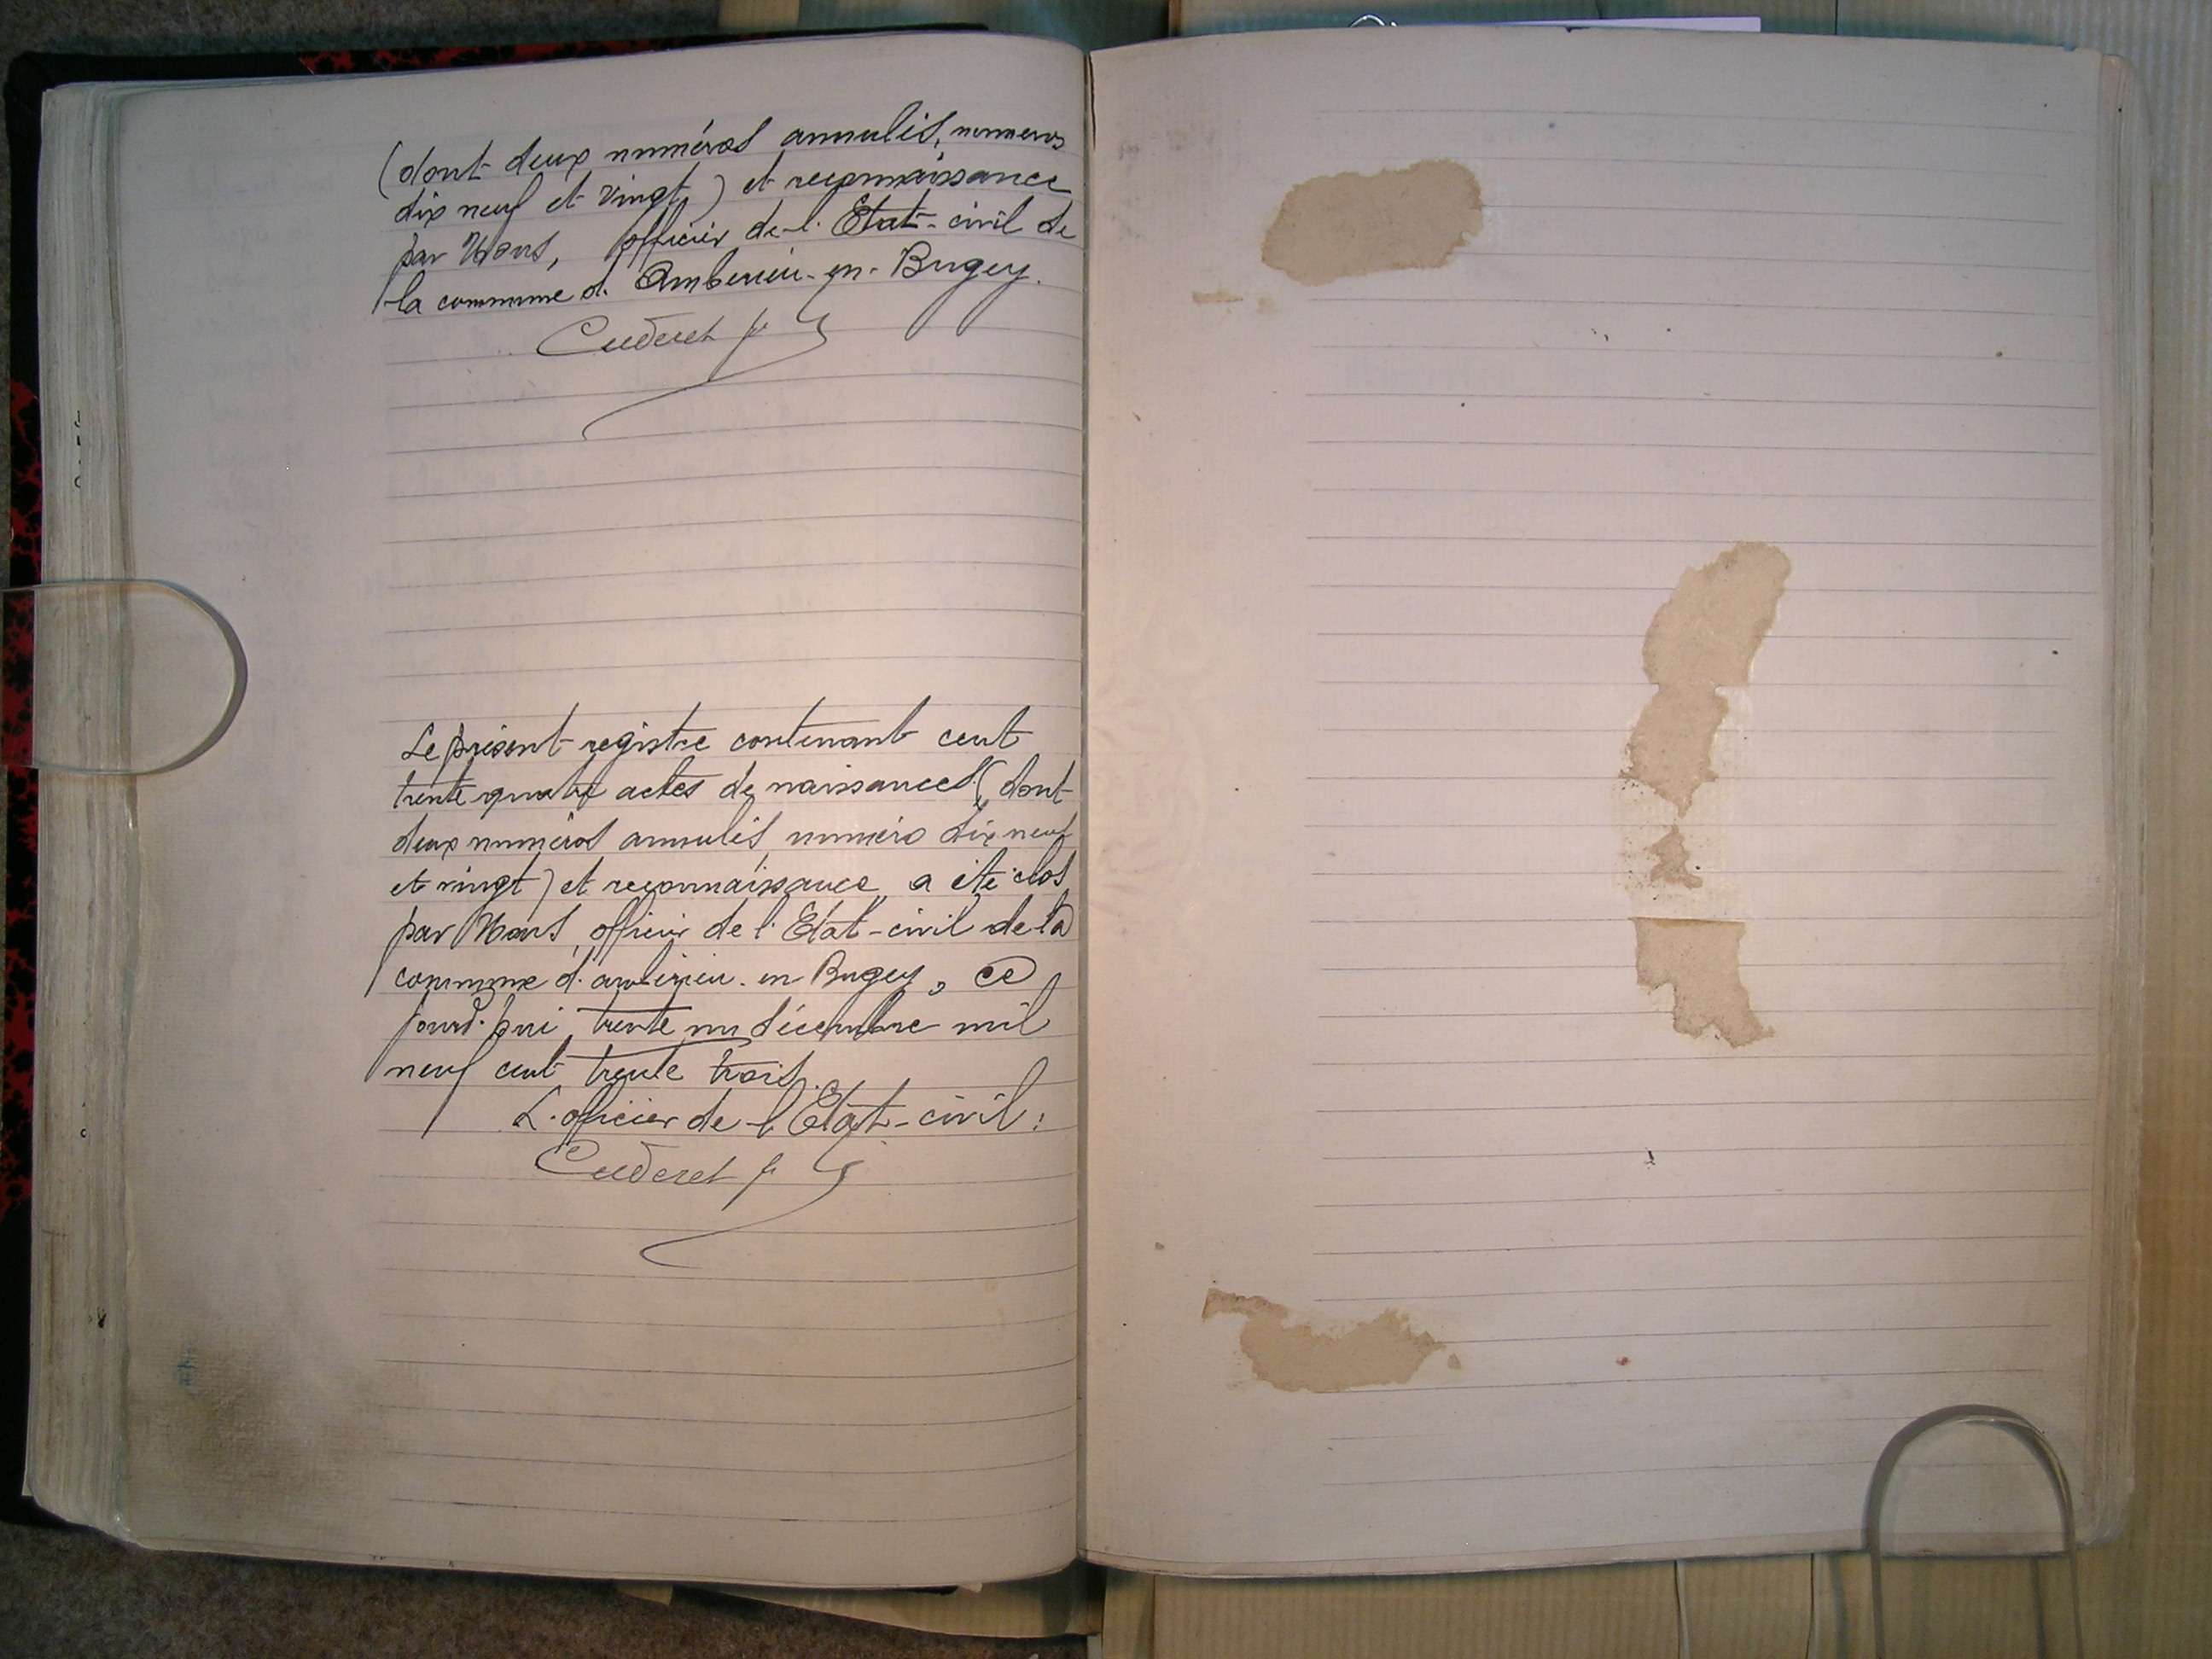 (dont deux numéros annulés, numeros
dix neuf et vingt) et reconnaissance
par Nous, officier de l'Etat-civil de
la commune d'Ambérieu-en-Bugey.
Cuderet
Le présent registre contenant cent
trente quatre actes de naissances (dont
deux numéros annulés, numéro dix neuf
et vingt) et reconnaissance a été clos
par Nous, officier de l'Etat-civil de la
commune d'ambérieu-en Bugey, ce
jourd'hui trente un décembre mil
neuf cent trente trois.
L'officier de l'Etat-civil:
Cuderet